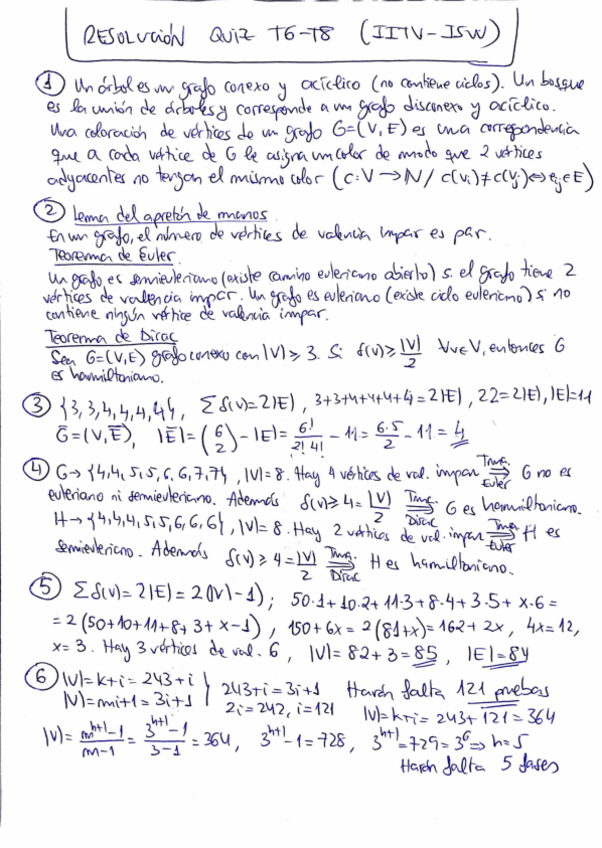 RESOLUCIÓN QUIZ T6-T8 (IITV-ISW)
① Un árbol es un grafo conexo y acíclico (no contiene ciclos). Un bosque
es la unión de árboles y corresponde a un grafo disconexo y acíclico.
Una coloración de vértices de un grafo G=(V,E) es una correspondencia
que a cada vértice de G le asigna un color de modo que 2 vértices
adyacentes no tengan el mismo color (c:V→ℕ / c(vi)≠c(vj)⇔eij∈E)
② Lema del apretón de manos
En un grafo, el número de vértices de valencia impar es par.
Teorema de Euler
Un grafo es semieuleriano (existe camino euleriano abierto) si el grafo tiene 2
vértices de valencia impar. Un grafo es euleriano (existe ciclo euleriano) si no
contiene ningún vértice de valencia impar.
Teorema de Dirac
Sea G=(V,E) grafo conexo con |V|≥3. Si δ(v)≥|V|/2 ∀v∈V, entonces G
es hamiltoniano.
③ {3,3,4,4,4,4}, Σδ(v)=2|E|, 3+3+4+4+4+4=2|E|, 22=2|E|, |E|=11
G̅=(V,E̅), |E̅|=(6 2)-|E|=6!/2!4!-11=6·5/2-11=4
④ G→{4,4,5,5,6,6,7,7}, |V|=8. Hay 4 vértices de val. impar ⇒ (Tma. Euler) G no es
euleriano ni semieuleriano. Además δ(v)≥4=|V|/2 ⇒ (Tma. Dirac) G es hamiltoniano.
H→{4,4,4,5,5,6,6,6}, |V|=8. Hay 2 vértices de val. impar ⇒ (Tma. Euler) H es
semieuleriano. Además δ(v)≥4=|V|/2 ⇒ (Tma. Dirac) H es hamiltoniano.
⑤ Σδ(v)=2|E|=2(|V|-1); 50·1+10·2+11·3+8·4+3·5+x·6=
=2(50+10+11+8+3+x-1), 150+6x=2(81+x)=162+2x, 4x=12,
x=3. Hay 3 vértices de val. 6, |V|=82+3=85, |E|=84
⑥ |V|=k+i=243+i
|V|=mi+1=3i+1 } 243+i=3i+1 Harán falta 121 pruebas
2i=242, i=121 |V|=k+i=243+121=364
|V|=m^(h+1)-1/m-1=3^(h+1)-1/3-1=364, 3^(h+1)-1=728, 3^(h+1)=729=3^6⇒h=5
Harán falta 5 fases